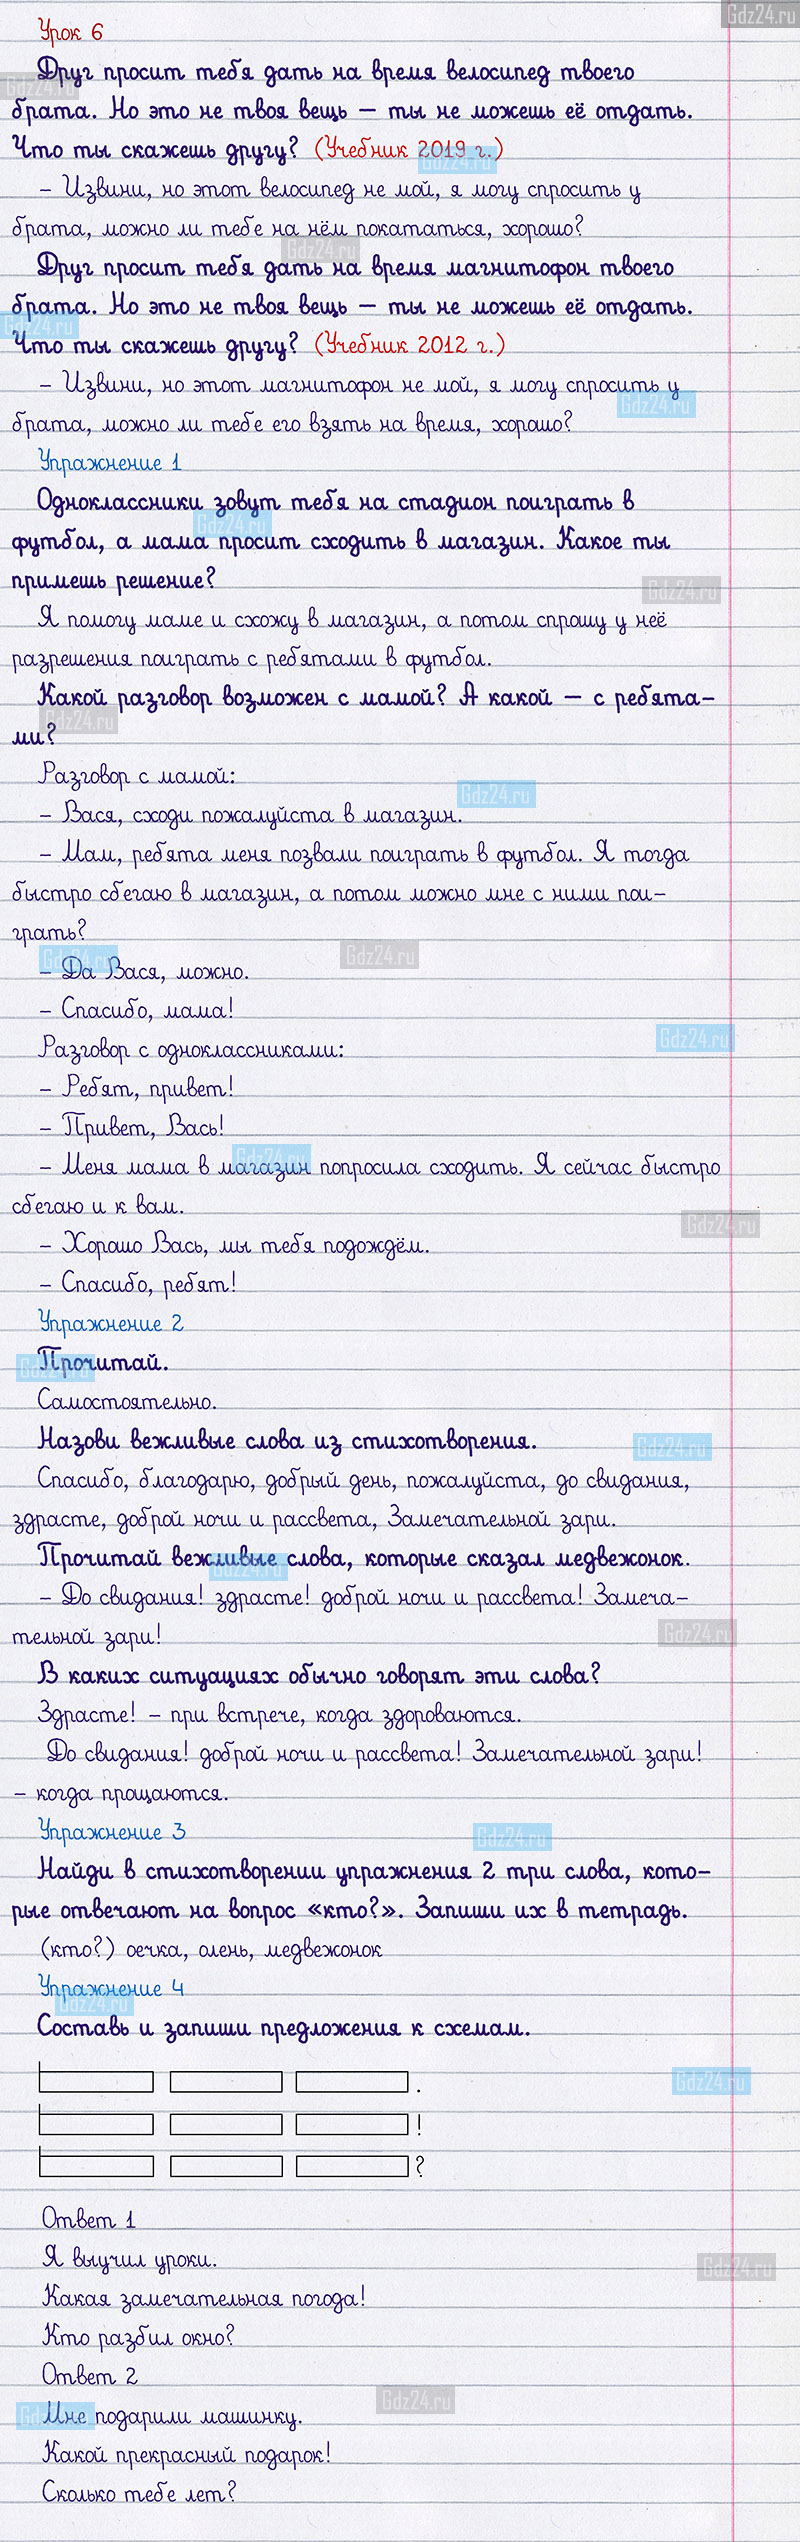 Gdz24.ru
Урок 6
Друг просит тебя дать на время велосипед твоего
брата. Но это не твоя вещь – ты не можешь её отдать.
Что ты скажешь другу? (Учебник 2019 г.)
– Извини, но этот велосипед не мой, я могу спросить у
брата, можно ли тебе на нём покататься, хорошо?
Друг просит тебя дать на время магнитофон твоего
брата. Но это не твоя вещь – ты не можешь её отдать.
Что ты скажешь другу? (Учебник 2012 г.)
– Извини, но этот магнитофон не мой, я могу спросить у
брата, можно ли тебе его взять на время, хорошо?
Упражнение 1
Одноклассники зовут тебя на стадион поиграть в
футбол, а мама просит сходить в магазин. Какое ты
примешь решение?
Я помогу маме и схожу в магазин, а потом спрошу у неё
разрешения поиграть с ребятами в футбол.
Какой разговор возможен с мамой? А какой – с ребята-
ми?
Разговор с мамой:
– Вася, сходи пожалуйста в магазин.
– Мам, ребята меня позвали поиграть в футбол. Я тогда
быстро сбегаю в магазин, а потом можно мне с ними пои-
грать?
– Да Вася, можно.
– Спасибо, мама!
Разговор с одноклассниками:
– Ребят, привет!
– Привет, Вась!
– Меня мама в магазин попросила сходить. Я сейчас быстро
сбегаю и к вам.
– Хорошо Вась, мы тебя подождём.
– Спасибо, ребят!
Упражнение 2
Прочитай.
Самостоятельно.
Назови вежливые слова из стихотворения.
Спасибо, благодарю, добрый день, пожалуйста, до свидания,
здрасте, доброй ночи и рассвета, Замечательной зари.
Прочитай вежливые слова, которые сказал медвежонок.
– До свидания! здрасте! доброй ночи и рассвета! Замеча-
тельной зари!
В каких ситуациях обычно говорят эти слова?
Здрасте! – при встрече, когда здороваются.
До свидания! доброй ночи и рассвета! Замечательной зари!
– когда прощаются.
Упражнение 3
Найди в стихотворении упражнения 2 три слова, кото-
рые отвечают на вопрос «кто?». Запиши их в тетрадь.
(кто?) оечка, олень, медвежонок
Упражнение 4
Составь и запиши предложения к схемам.
.
!
?
Ответ 1
Я выучил уроки.
Какая замечательная погода!
Кто разбил окно?
Ответ 2
Мне подарили машинку.
Какой прекрасный подарок!
Сколько тебе лет?